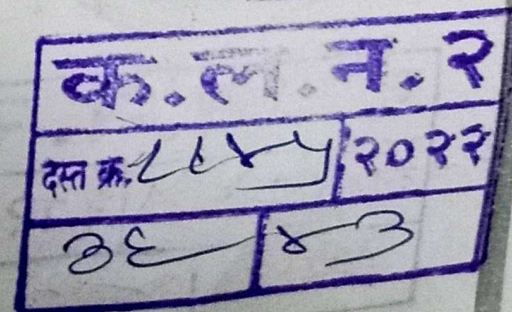 क.ल.न.२
दस्त क्र. ८८४५ २०२२
३६ ४३